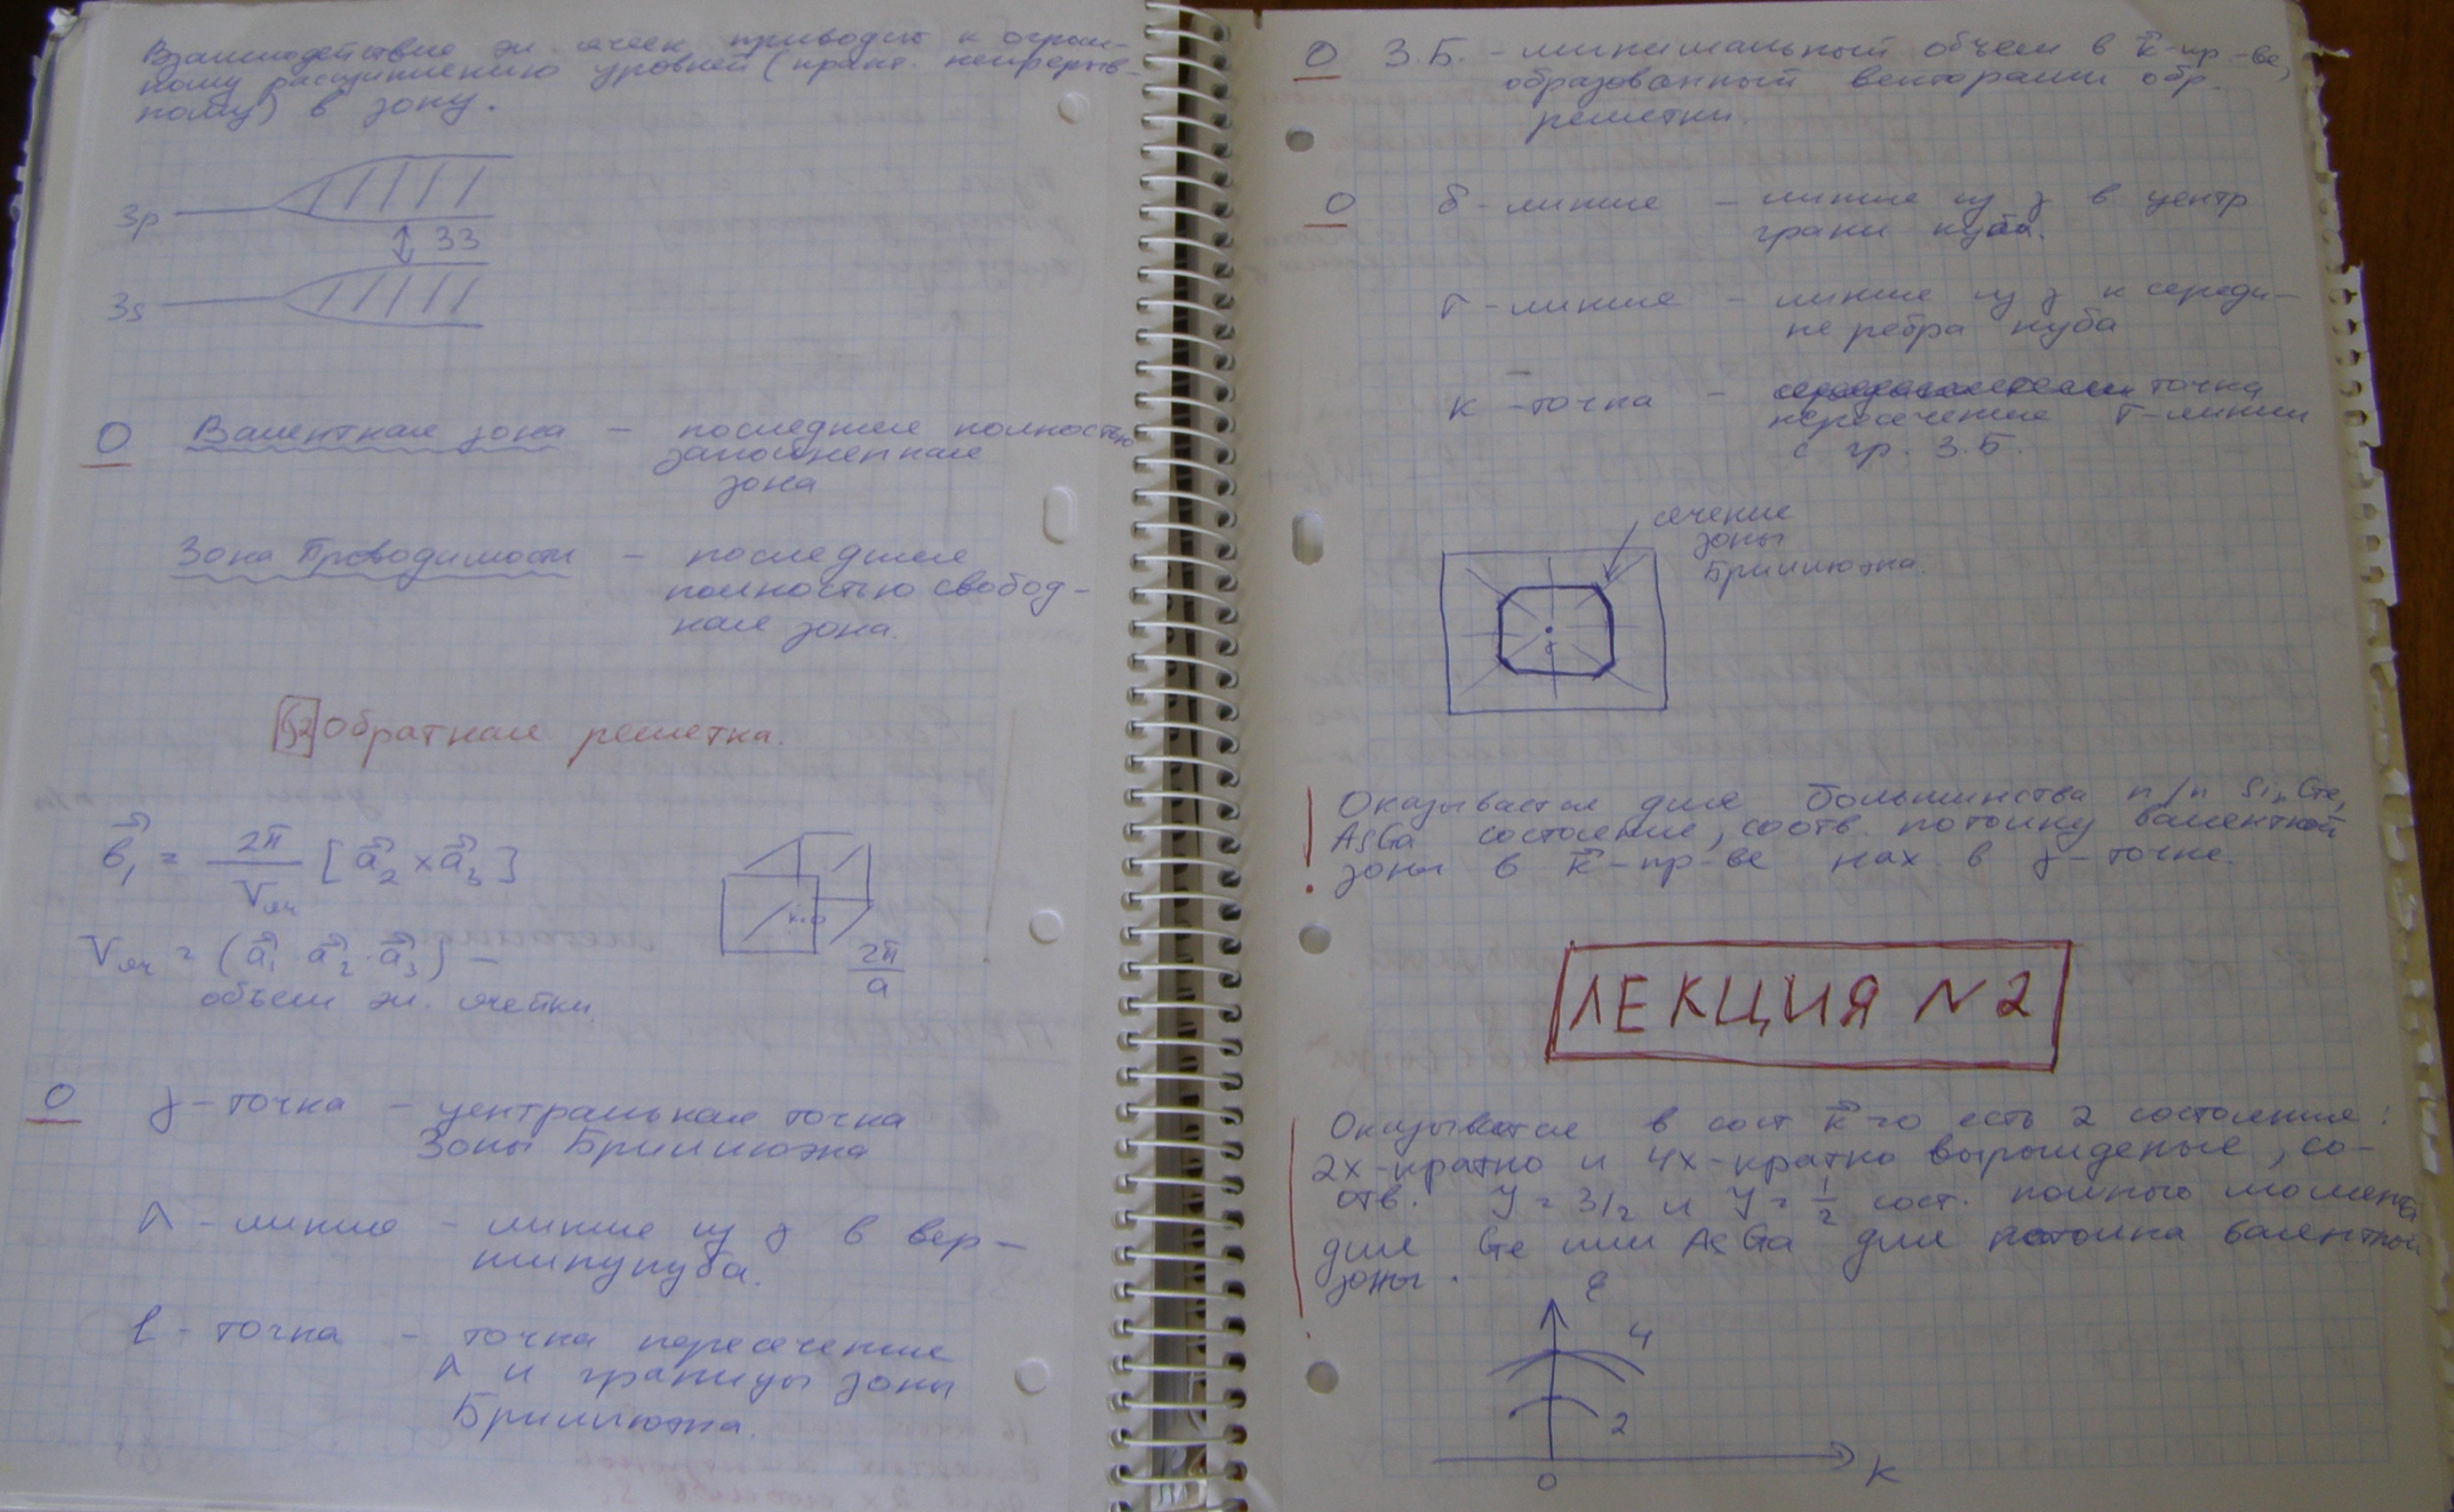 Взаимодействие эл. ячеек приводит к огром-
ному расщиплению уровней (практ. непрерыв-
ному) в зону.
3p
ЗЗ
3s
О Валентная зона - последняя полностью
заполненная
зона
Зона Проводимости - последняя
полностью свобод-
ная зона.
§2 Обратная решетка.
b₁ = 2π/Vяч [a₂ × a₃]
k=0
Vяч = (a₁ a₂ a₃) -
2π/a
объем эл. ячейки
О γ - точка - центральная точка
Зоны Бриллюэна
Λ - линия - линия из γ в вер-
шину куба.
L - точка - точка пересечения
Λ и границы зоны
Бриллюэна.
О З.Б. - минимальный объем в k-пр-ве,
образованный векторами обр.
решетки.
О δ - линия - линия из γ в центр
грани куба.
Г - линия - линия из γ к середи-
не ребра куба
К - точка - точка
пересечения Г-линии
с гр. З.Б.
сечение
зоны
Бриллюэна.
Оказывается для большинства п/п Si, Ge,
AsGa состояние, соотв. потолку валентной
зоны в k-пр-ве нах. в γ-точке.
ЛЕКЦИЯ N2
Оказывается в сост k=0 есть 2 состояния:
2х-кратно и 4х-кратно вырожденые, со-
отв. J = 3/2 и J = 1/2 сост. полного момента
для Ge или AsGa для потолка валентной
зоны.
ε
4
2
0
K